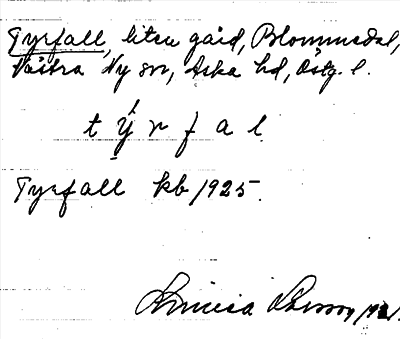 Tyrfall, liten gård, Blommedal,
Västra Ny sn, Aska hd, Östg. l.
t ý r f a l
Tyrfall kb 1925.